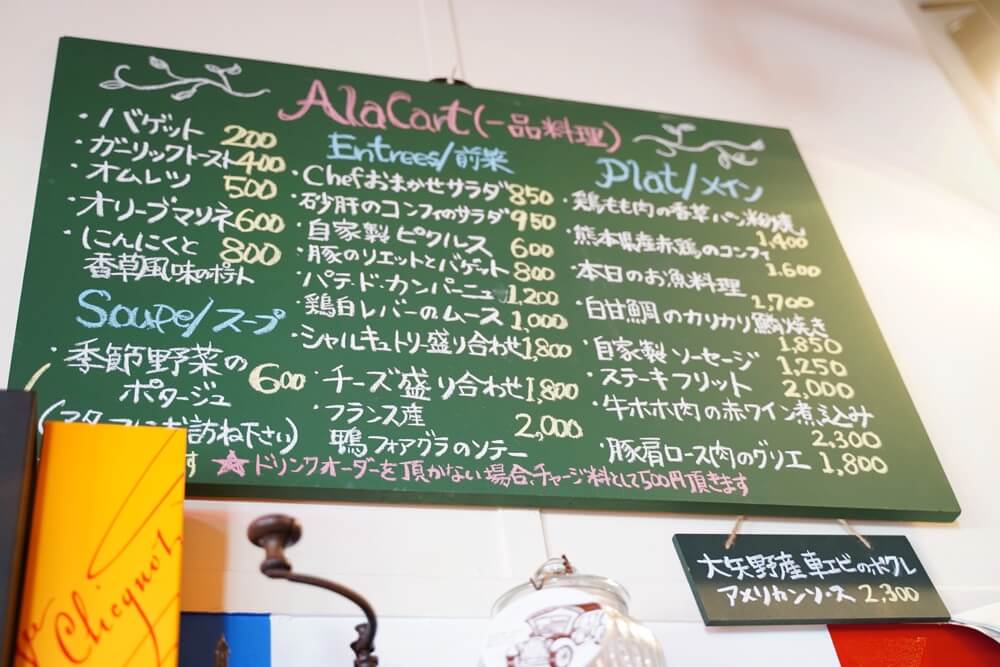 AlaCart(一品料理)
・バゲット 200
・ガーリックトースト 400
・オムレツ 500
・オリーブマリネ 600
・にんにくと 800
香草風味のポテト
Soupe/スープ
・季節野菜の
ポタージュ 600
お訪ね下さい)
Entrees/前菜
・Chefおまかせサラダ 850
・砂肝のコンフィのサラダ 950
・自家製ピクルス 600
・豚のリエットとバゲット 800
・パテ・ド・カンパーニュ 1,200
・鶏白レバーのムース 1,000
・シャルキュトリー盛り合わせ 1,800
・チーズ盛り合わせ 1,800
・フランス産 2,000
鴨フォアグラのソテー
Plat/メイン
・鶏もも肉の香草パン粉焼
1,400
・熊本県産赤鶏のコンフィ
1,600
・本日のお魚料理
1,700
・白甘鯛のカリカリ鱗焼き
1,850
・自家製ソーセージ 1,250
・ステーキフリット 2,000
・牛ホホ肉の赤ワイン煮込み
2,300
・豚肩ロース肉のグリエ 1,800
す ★ドリンクオーダーを頂かない場合、チャージ料として500円頂きます
大矢野産車エビのポワレ
アメリカンソース 2,300